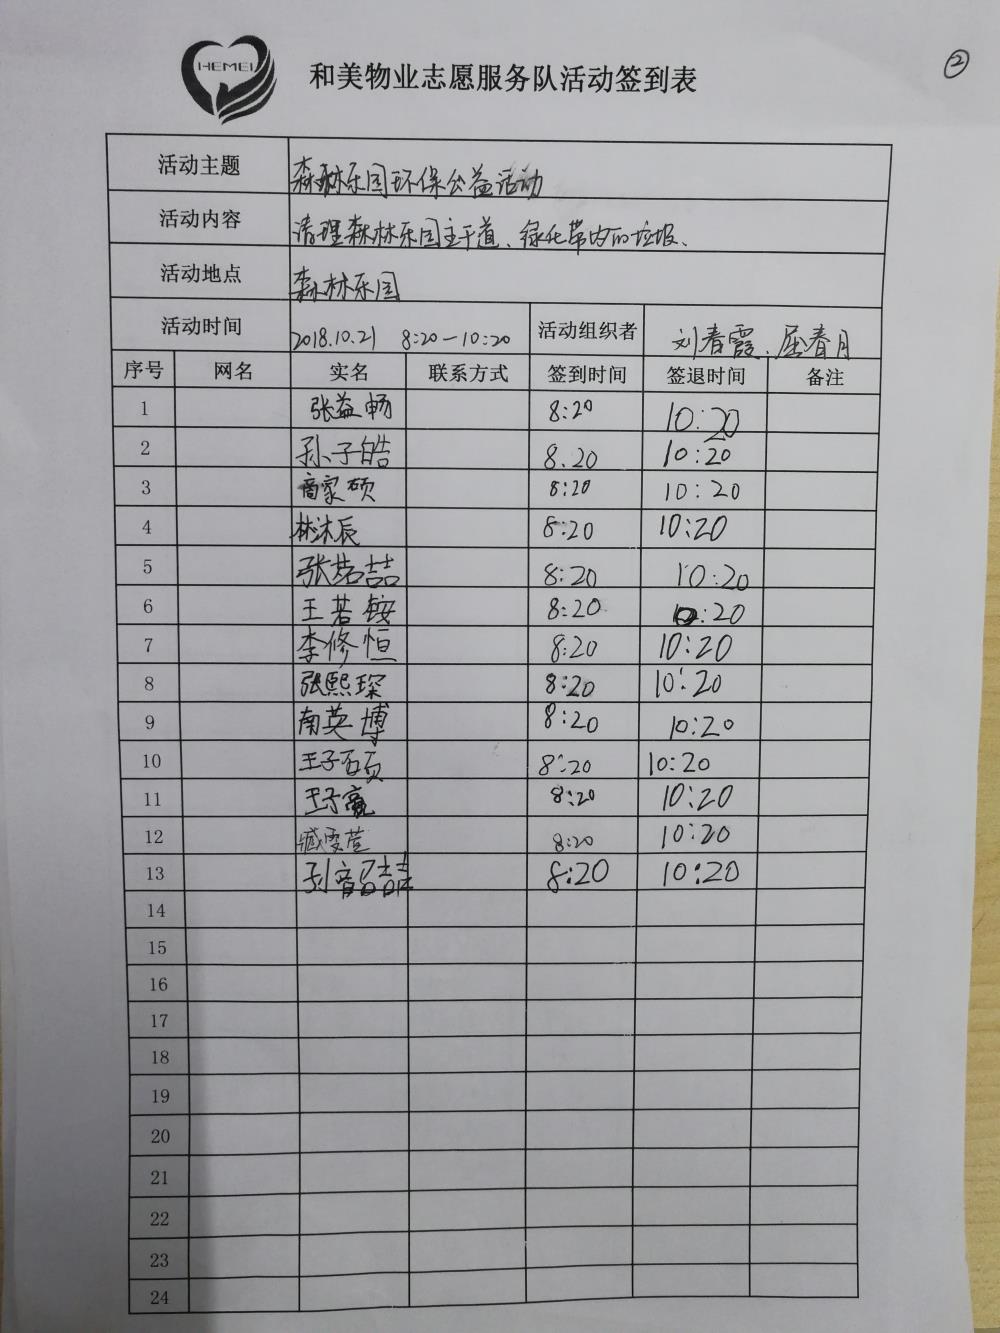 HEMEI
和美物业志愿服务队活动签到表
②
活动主题 森林乐园环保公益活动
活动内容 清理森林乐园主干道、绿化带内的垃圾、
活动地点 森林乐园
活动时间 2018.10.21 8:20—10:20 活动组织者 刘春霞、屈春月
序号 网名 实名 联系方式 签到时间 签退时间 备注
1 张益畅 8:20 10:20
2 孙子皓 8.20 10:20
3 商家硕 8:20 10:20
4 林沐辰 8:20 10:20
5 张喆 8:20 10:20
6 王若铵 8:20 10:20
7 李修恒 8:20 10:20
8 张熙琛 8:20 10:20
9 南英博 8:20 10:20
10 王子硕 8:20 10:20
11 王子 8:20 10:20
12 臧雯萱 8:20 10:20
13 8:20 10:20
14
15
16
17
18
19
20
21
22
23
24